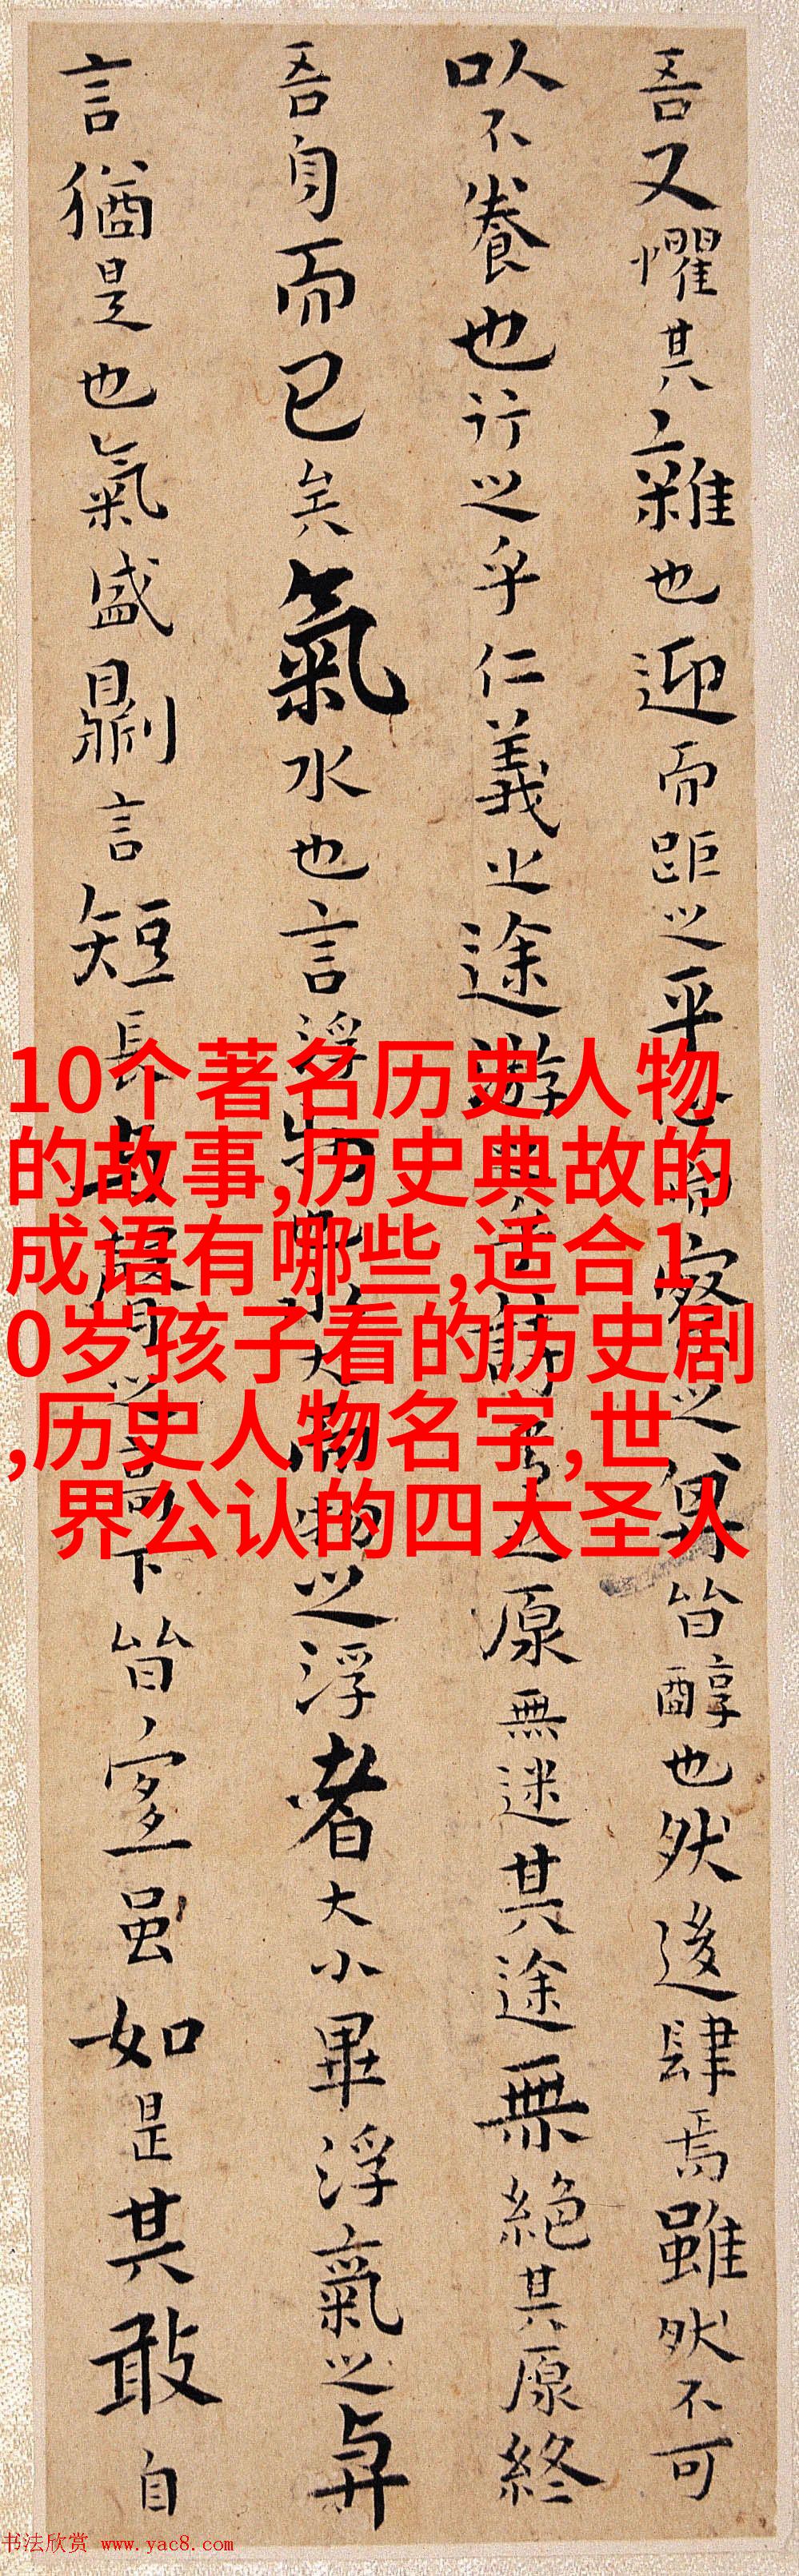 吾又懼其雜也迎而距之平心而察之其皆醇也然後肆焉雖然不可
以不養也行之乎仁義之途游之乎詩書之原無迷其途無絕其原終
吾身而已矣氣水也言浮物也水大而物之浮者大小畢浮氣之與
言猶是也氣盛則言短長與聲之高下皆宜虽如是其敢自
10个著名历史人物
的故事,历史典故的
成语有哪些,适合1
0岁孩子看的历史剧
,历史人物名字,世
界公认的四大圣人
书法欣赏 www.yac8.com